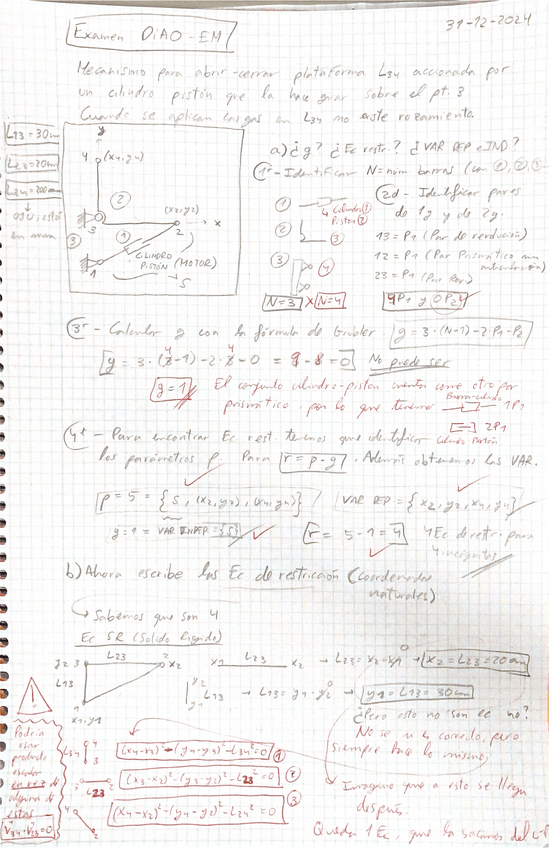 Examen DiAO-EM
31-12-2024
Mecanismo para abrir-cerrar plataforma L34 accionada por
un cilindro pistón que la hace girar sobre el pt. 3
Cuando se aplican cargas en L34 no existe rozamiento.
L13=30cm
L23=20cm
esto está
en mm
y
4 (x4,y4)
2
3
(x2,y2)
x
2
3
1
1
CILINDRO
PISTÓN (MOTOR)
S
a) ¿g? ¿Ec restr.? ¿VAR DEP e IND?
1º- Identificar N=núm barras (con 1, 2, 3
1
Cilindro 1
Pistón 2
2
3
3
4
N=3 X N=4
2d - Identificar pares
de 1g y de 2g.
13 = P1 (Par de revolución)
12 = P1 (Par Prismático
23 = P1 (Par
4P1 y 0P2
3º - Calcular g con la fórmula de Grubler g = 3·(N-1)-2·P1-P2
g = 3·(4-1)-2·4-0 = 9-8=0 No puede ser
g=1 El conjunto cilindro-piston cuenta como otro par
prismático, por lo que tenemos
Barra-cilindro
1P1
2P1
Cilindro Pistón
4º - Para encontrar Ec rest. tenemos que identificar
los parámetros p. Para r=p-g. Además obtenemos las VAR.
p=5={s, (x2,y2), (x4,y4)} / VAR DEP={x2,y2,x4,y4}
g=1= VAR INDEP={s} r= 5-1=4 4 Ec de restr. para
4 incógnitas
b) Ahora escribe las Ec de restricción (coordenadas
naturales)
Sabemos que son 4
Ec SR (Sólido Rígido)
3 L23 2 x2
L13
1
x1,y1
L23 x2 → L23= → x2=L23=20cm
L13 → L13= → =L13=30cm
¿Pero esto no son ec no?
No se si es correcto, pero
siempre hace lo mismo,
Imagino que a esto se llega
después.
Podría
usar
producto
escalar
en vez de
alguna de
estas
V34·V23=0
L34
4
3
(x4-x3)²-(y4-y3)²-L34²=0 1
3
2
L23
(x3-x2)²-(y3-y2)²-L23=0 2
4
2
(x4-x2)²-(y4-y2)²-L24²=0 3
Queda 1 Ec, que la sacamos del